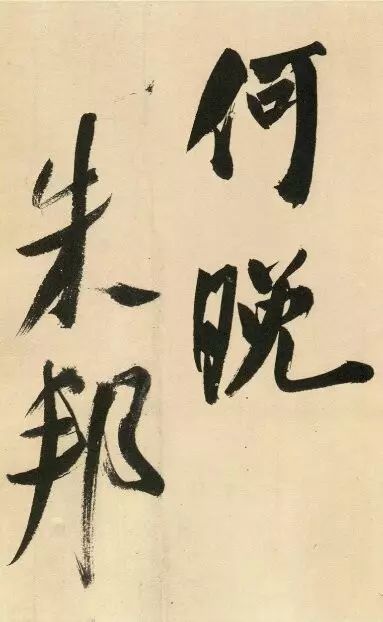 何晚
朱邦